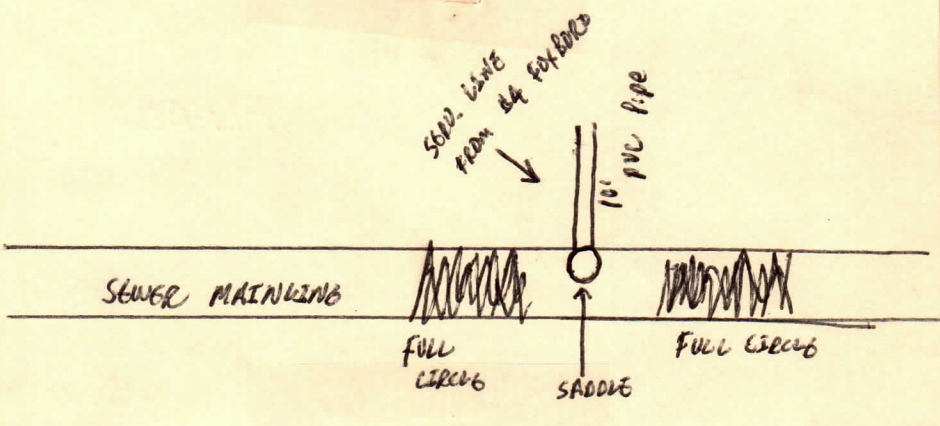 SERV. LINE
FROM 84 FOXBORO
10' PVC PIPE
SEWER MAINLINE
FULL
CIRCLE
SADDLE
FULL CIRCLE